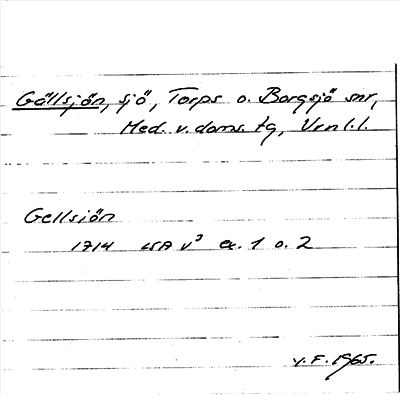 Gällsjön, sjö, Torps o. Borgsjö snr,
Med. v. doms. tg, Vrnl.l.
Gellsiön
1714 LSA V³ ex. 1 o. 2
V.F. 1965.